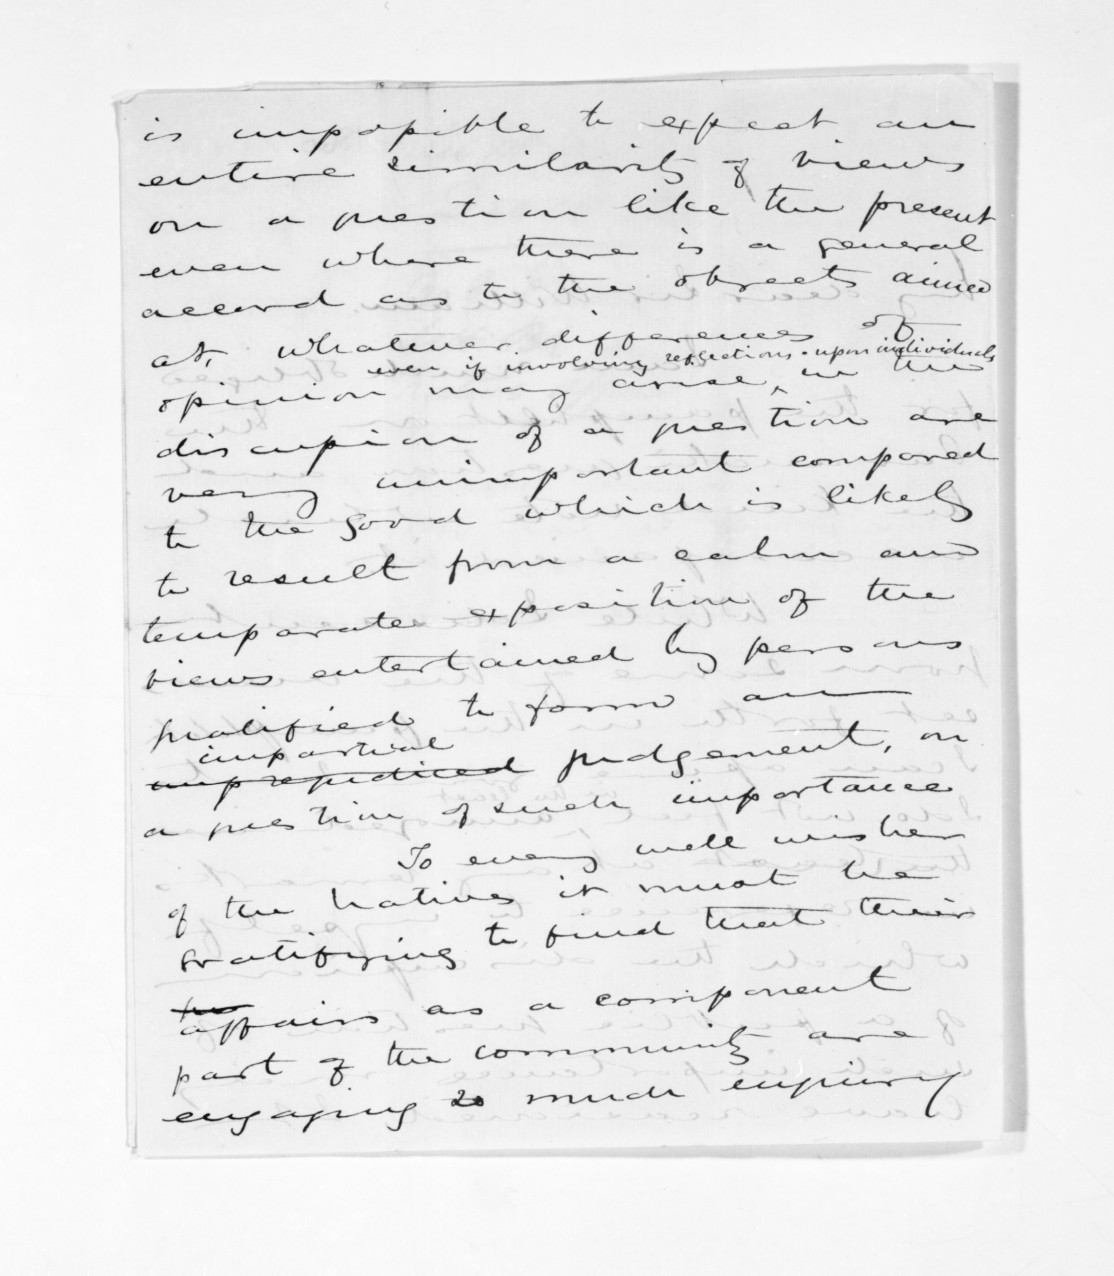 is impossible to expect an
entire similarity of views
on a question like the present
even where there is a general
accord as to the objects aimed
at, whatever differences of
even if involving reflections upon individuals
opinion may arise, in the
discussion of a question are
very unimportant compared
to the good which is likely
to result from a calm and
temperate exposition of the
views entertained by persons
qualified to form an
impartial
unprejudiced judgement, on
a question of such importance
To every well wisher
of the Natives it must be
gratifying to find that their
affairs as a component
part of the community are
engaging so much enquiry